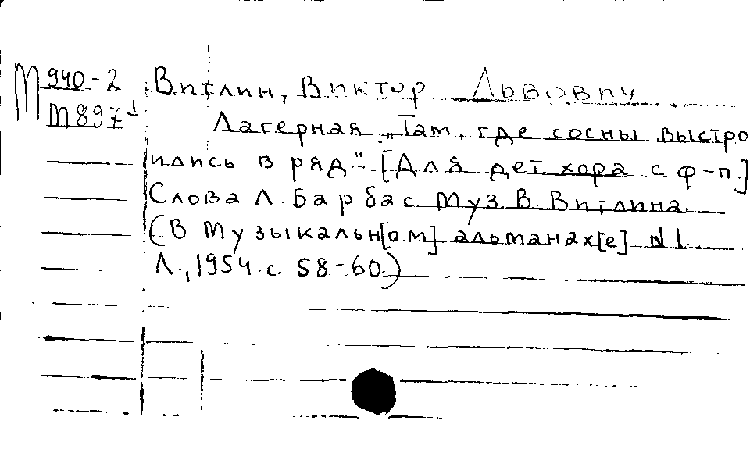 М 940-2 Витлин, Виктор Львович
М897¹ Лагерная „Там, где сосны выстро
ились в ряд" [Для дет хора с ф-п.]
Слова Л. Барбас Муз В. Витлина
(В Музыкальн[ом] альманах[е] №1
Л., 1954 с 58-60)